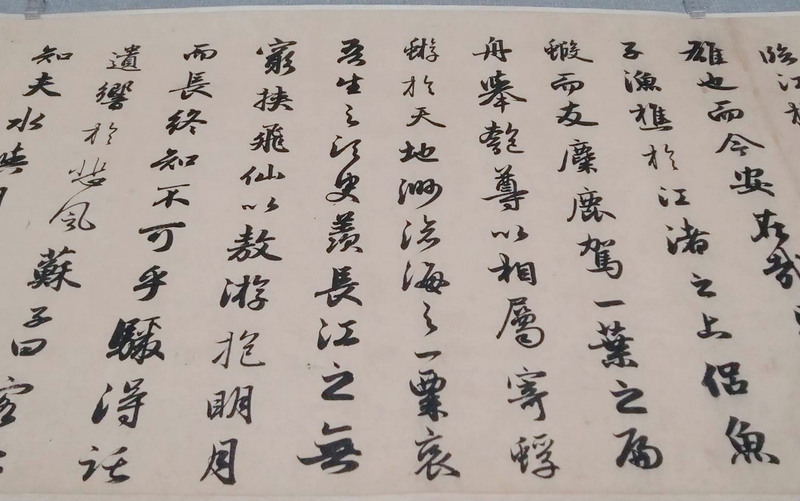 臨江
雄也而今安在哉
子漁樵於江渚之上侶魚
蝦而友麋鹿駕一葉之扁
舟舉匏尊以相屬寄蜉
蝣於天地渺滄海之一粟哀
吾生之須臾羨長江之無
窮挾飛仙以遨游抱明月
而長終知不可乎驟得託
遺響於悲風蘇子曰客
知夫水與月